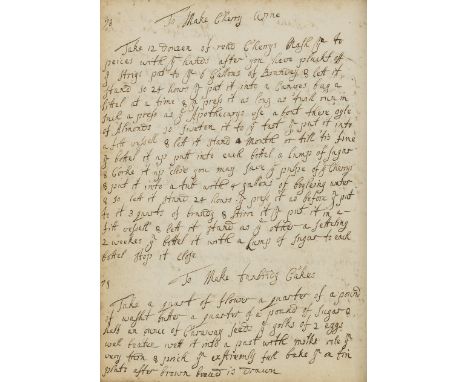 To Make Cherry Wine
Take 12 dozen of redd Cherrys Mash ym to
peices with yr hands after you have pluckt of
ye strigs put to ym 6 Gallons of Brandy & let it
stand so 24 hours yn put it into a Canves bag a
littel at a time & press it as long as twill run in
such a press as ye Apothecarys use about there oyle
of Almonds so sweeten it to yr tast yn put it into
a fitt vessell & let it stand a Month or till tis fine
yn bottel it up putt into each bottel a Lump of Sugar
& Corke it up close you may save ye pulpe of ye Cherrys
& put it into a tub with 4 gallons of boyleing water
& so let it stand 24 hours yn press it as before yn put
to it 3 quarts of brandy & stirr it yn put it in a
fitt vessell & let it stand as ye other a setteling
2 weekes yn bottel it with a Lump of sugar to each
bottel stop it close
To Make Cakes
Take a quart of flower a quarter of a pound
of washt butter a quarter of a pound of sugar &
half an ounce of Caraway seeds ye yolks of 2 eggs
well beaten wett it into a past with milke role ym
very thin & prick ym extreamly full bake ym a tin
plate after brown bread is drawn